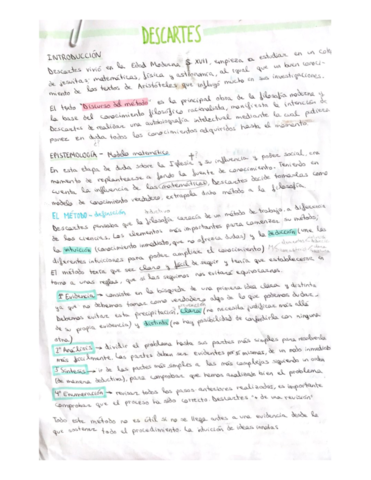 DESCARTES
INTRODUCCIÓN
Descartes vivió en la Edad Moderna S XVII, empieza a estudiar en un cole
de jesuitas matemáticas, física y astronomía, al igual que un buen conoci-
miento de los textos de Aristóteles que influyó mucho en sus investigaciones.
El texto "Discurso del método" es la principal obra de la filosofía moderna y
la base del conocimiento filosófico racionalista, manifiesta la intención de
Descartes de realizar una autobiografía intelectual mediante la cual pudiera
poner en duda todos los conocimientos adquiridos hasta el momento.
EPISTEMOLOGÍA - Modelo matemático
En esta etapa de duda sobre la Iglesia y su influencia y poder social, era
momento de replantearse la fuente de conocimiento. Teniendo en
cuenta la influencia de las matemáticas, Descartes decide tomarlas como
modelo de conocimiento verdadero, extrapola dicho método a la filosofía.
EL MÉTODO - definición
Descartes pensaba que la filosofía carecía de un método de trabajo, a diferencia
de las ciencias. Los elementos más importantes para comenzar su método,
la intuición (conocimiento inmediato, que no ofrece dudas) y la deducción (une las
diferentes intuiciones para poder ampliar el conocimiento)
El método tenía que ser claro y fácil de seguir y tenía que establecerse en
torno a unas reglas, que si las seguimos nos evitamos equivocarnos.
1º Evidencia → consiste en la búsqueda de una primera idea clara y distinta
ya que no debemos tomar como verdadero algo de lo que podamos dudar.
Debemos evitar esta precipitación, clara (no necesita justificar más allá
de su propia evidencia) y distinta (no hay posibilidad de confundirla con ninguna
otra)
2º Análisis → dividir el problema hasta sus partes más simples para resolverlo
más fácilmente. Las partes deben ser evidentes por sí mismas, de un modo inmediato
3º Síntesis → ir de las partes más simples a las más complejas siguiendo un orden
(de manera deductiva), para comprobar que hemos analizado bien el problema
4º Enumeración → revisar todos los pasos anteriores realizados, es importante
comprobar que el proceso ha sido correcto. Descartes
Todo este método no es útil si no se llega antes a una evidencia desde la
que sostener todo el procedimiento.